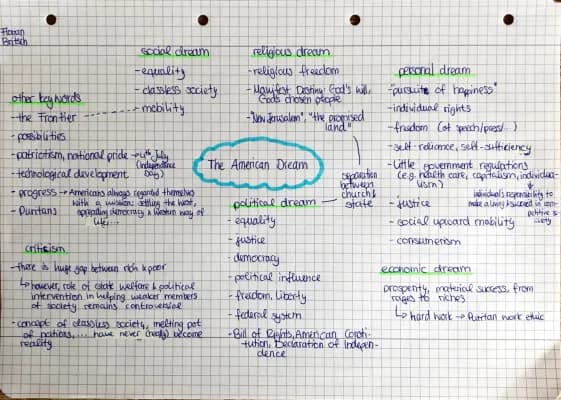 Florian
Britsch
social dream
- equality
- classless society
- mobility
religious dream
- religious freedom
- Manifest Destiny, God's will,
God's chosen people
- "New Jerusalem", "the promised
land"
personal dream
- "pursuit of happiness"
- individual rights
- freedom (of speech/press/...)
- self-reliance, self-sufficiency
- Little government regulations
(e.g. health care, capitalism, individua-
lism)
individual's responsibility to
make a living & succeed in com-
petitive society
- justice
- social upward mobility
- consumerism
other key words
- the Frontier
- possibilities
- patriotism, national pride → 4th July
(Independence
Day)
- technological development
- progress → Americans always regarded themselves
with a mission: settling the West,
spreading democracy & western way of
life...
- Puritans
The American Dream
separation
between
church &
state
political dream
- equality
- justice
- democracy
- political influence
- freedom, Liberty
- federal system
- Bill of Rights, American Consti-
tution, Declaration of Indepen-
dence
criticism
- there is huge gap between rich & poor
↳ however, role of state welfare & political
intervention in helping weaker members
of society remains controversial
- concept of classless society, melting pot
of nations, ... have never (really) become
reality
economic dream
prosperity, material success, from
rags to riches
↳ hard work → Puritan work ethic